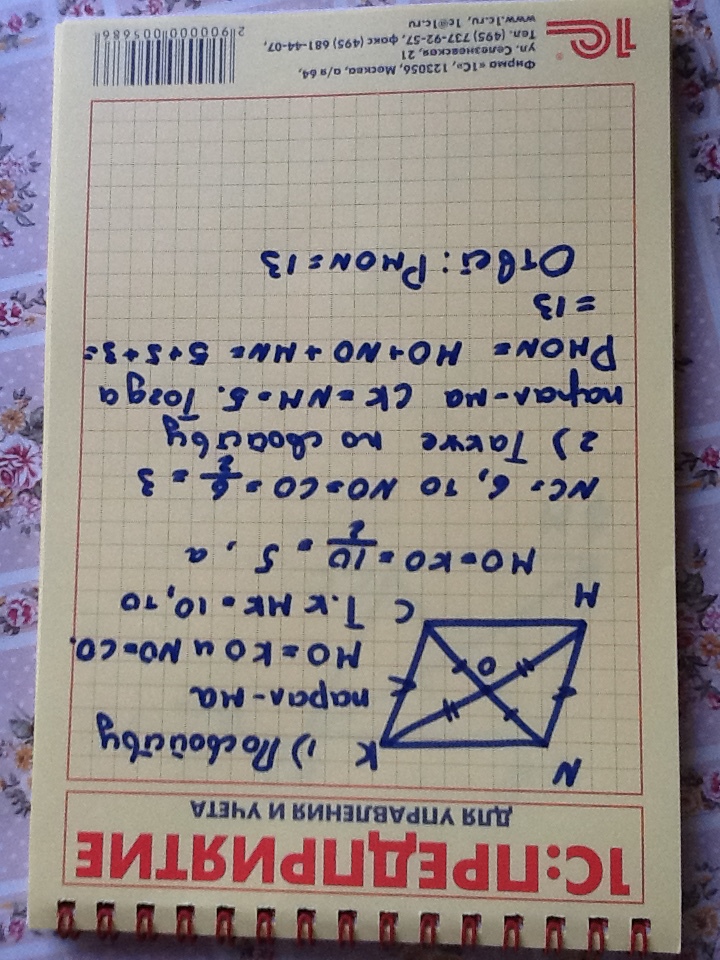 1С:ПРЕДПРИЯТИЕ
ДЛЯ УПРАВЛЕНИЯ И УЧЕТА
N
K
O
M
C
1) По свойству
парал-ма
MO = KO и NO=CO.
Т.к MK = 10, то
MO=KO = 10/2 = 5, а
NC= 6, то NO=CO = 6/2 = 3
2) Также по свойству
парал-ма CK = NM = 5. Тогда
PMON = MO+NO+MN= 5+5+3=
=13
Ответ: PMON = 13
Фирма «1С», 123056, Москва, а/я 64,
ул. Селезневская, 21
Тел. (495) 737-92-57, факс (495) 681-44-07,
www.1c.ru, 1c@1c.ru
1С
®
2900000005686